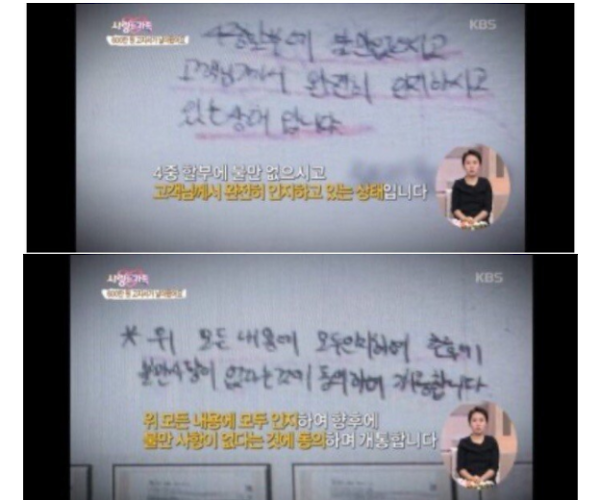 사랑의 가족
KBS
4중할부에 불만없으시고
고객님께서 완전히 인지하시고
있는상태 입니다
4중 할부에 불만 없으시고
고객님께서 완전히 인지하고 있는 상태입니다
사랑의 가족
KBS
* 위 모든 내용에 모두인지하여 추후에
불만사항이 없다는것에 동의하며 개통합니다
위 모든 내용에 모두 인지하여 향후에
불만 사항이 없다는 것에 동의하며 개통합니다